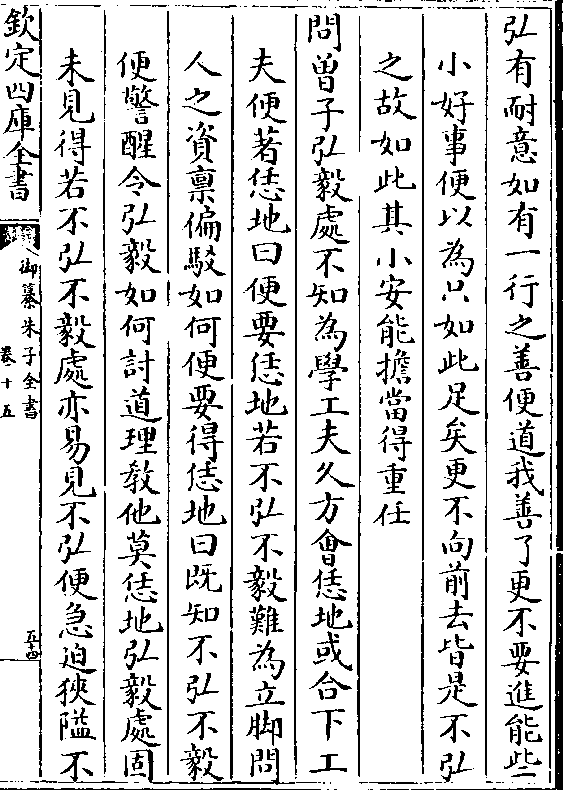 弘有耐意如有一行之善便道我善了更不要進能些
小好事便以為只如此足矣更不向前去皆是不弘
之故如此其小安能擔當得重任
問曽子弘毅處不知為學工夫久方會恁地或合下工
夫便著恁地曰便要恁地若不弘不毅難為立脚問
人之資禀偏駁如何便要得恁地曰既知不弘不毅
便警醒令弘毅如何討道理教他莫恁地弘毅處固
未見得若不弘不毅處亦易見不弘便急迫狹隘不
欽定四庫全書
御纂朱子全書
卷十五
五十四